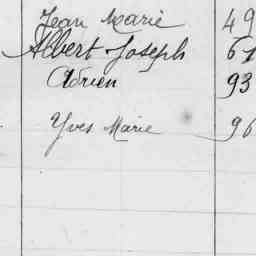 Jean Marie 49
Albert Joseph 61
Adrien 93
Yves Marie 96